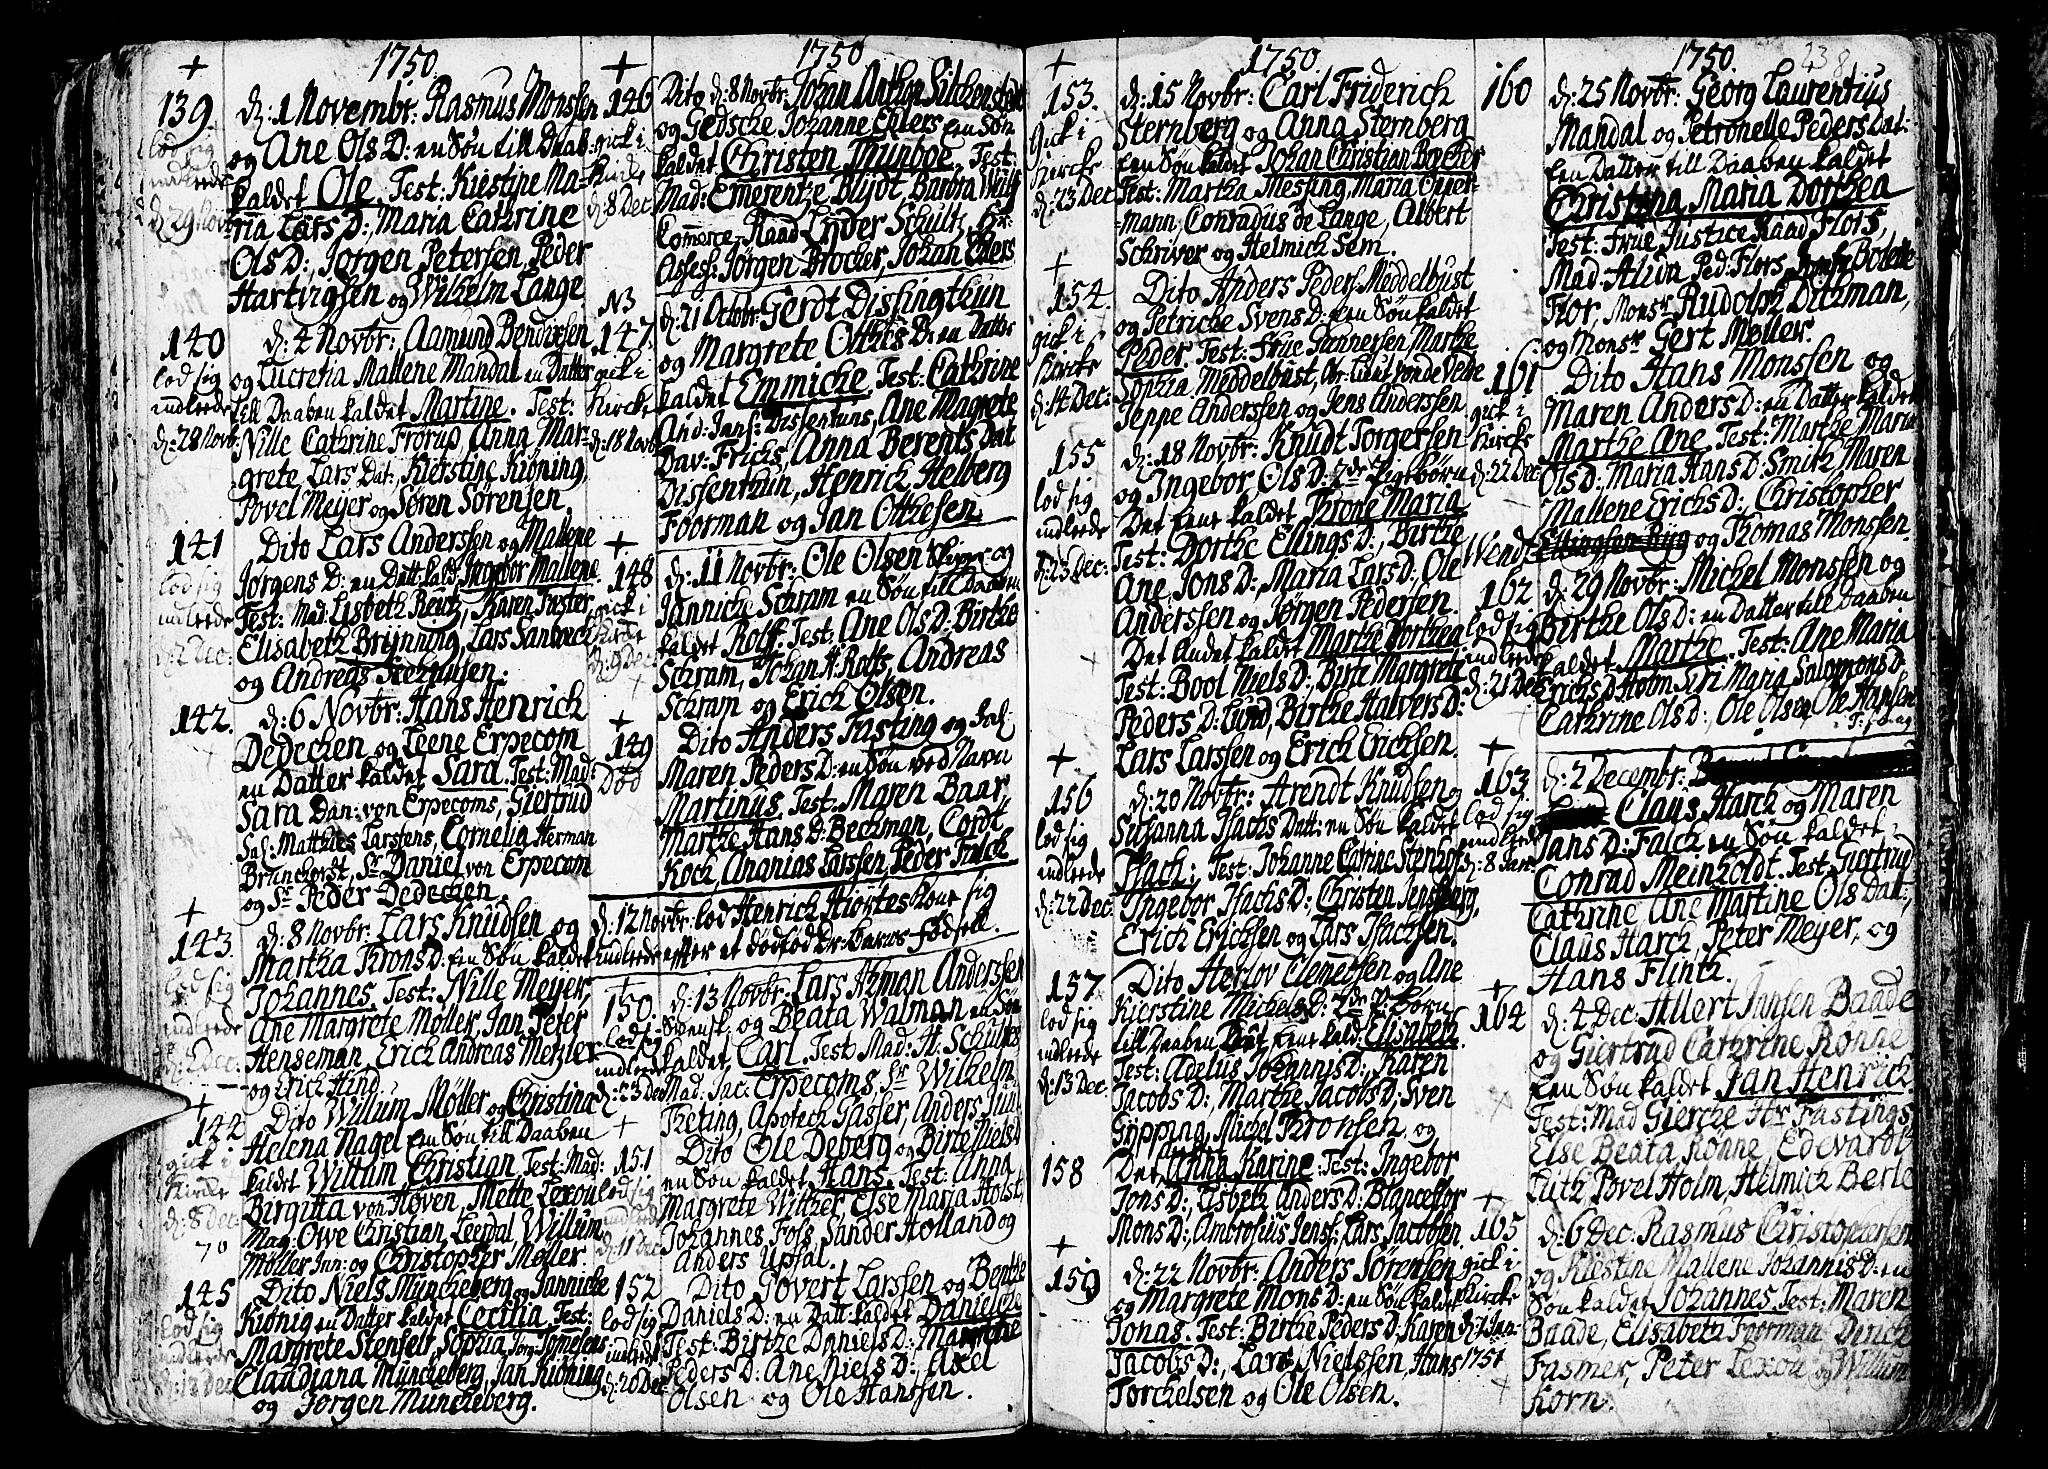 1750
+
139.
lod sig
indlede
d: 29 Nov
d: 1 Novembr: Rasmus Monssen
og Ane Ols D: en Søn till Daab
kaldet Ole. Test: Kiestine Ma-
ria Lars D:, Maria Cathrine
Ols D:, Jørgen Petersen, Peder
Hartvigsen og Wilhelm Lange
140
lod sig
indlede
d: 28 Novb:
d: 4 Novbr: Aamund Bendixsen
og Lucretia Mallene Mandal en Datter
till Daaben kaldet Martine. Test:
Nille Cathrine Frørup, Anna Mar-
grete Lars Dat:, Kierstine Kröning,
Povel Meyer og Søren Sørensen.
141
lod sig
indlede
d: 2 Dec:
Dito Lars Anderssen og Mallene
Jørgens D: en Datt: kald: Ingebor Mallene
Test: Mad: Lisbeth Reutz, Karen Faster
Elisabeth Brynning, Lars Sandvech
og Andreas
142.
d: 6 Novbr: Hans Henrick
Dedechen og Leene Erpecom
en Datter kaldet Sara. Test: Mad:
Sara Dan: von Erpecoms, Giertrud
Sal: Matthies Carstens, Cornelia Herman
Brunchorst, Sr Daniel von Erpecom
og Sr Peder Dedechen
+
143
lod sig
indlede
d: 2 Dec:
d: 8 Novbr: Lars Knudsen og
Martha Krons D: en Søn kaldet
Johannes. Test: Nille Meyer,
Ane Margrete Møller, Jan Peter
Henseman, Erich Andreas Metzler
og Erich Hind
+
144
gick i
Kircke
d: 8 Dec:
70
Dito Willum Møller og Christina
Helena Nagel en Søn till Daaben
kaldet Willum Christian. Test: Mad:
Birgitta von Hoven, Mette Lexou
Mag: Owe Christian Leerdal, Willum
Møller Jun: og Christopher Møller
145
lod sig
indlede
d: 12 Dec
Dito Niels Münckeberg og Jannicke
Krönig en Datter kaldet Cecilia. Test:
Margrete Stenfelt, Sophia Jørg: Tomesens
Claudiana Münckeberg, Jan Kröning
og Jørgen Munckeberg.
1750
+
146
gick i
Kircke
d: 8 Dec
Dito d: 8 Novbr: Johan Anthon
og Gedsche Johanne Ehlers en Søn
kaldet Christen Thunboe. Test:
Mad: Emerentze Blydt Barbra
Kommerce Raad Lyder Schultz, Hr:
Assess: Jørgen Brocker, Johan Ehlers
N3
147.
gick i
Kircke
d: 18 Novb
d: 21 Octobr: Gerdt Dissingthun
og Margrete Otthes D: en Datter
kaldet Emmiche. Test: Cathrine
And: Jans: Dissentuns, Ane Magrete
Dav: Frichs, Anna Berents Dat
Dissenthun, Henrick Helberg
Foorman og Jan Otthesen.
+
148
gick i
Kircke
d: 9 Dec
d: 11 Novbr: Ole Olsen Skipper og
Jannicke Schram en Søn till Daaben
kaldet Rolf. Test: Ane Ols D: Birthe
Schram, Johan H: Rolfs, Andreas
Schram og Erich Olsen.
+
149
Død
Dito Anders Fasting og Sal:
Maren Peders D: en Søn ved Navn
Martinus. Test: Maren Baar
Marthe Hans D: Beckman, Cordt
Koch, Ananias Larssen, Peder Falch
d: 12 Novbr: lod Henrich Hiortes Kone sig
indlede effter et dødfød Fødsell.
+
150.
lod sig
indlede
d: 23 Dec
d: 13 Novbr: Lars Ahman Anderssen
Svensk, og Beata Walman en Søn
kaldet, Carl. Test: Mad: H: Schultes
Mad: Jac: Erpecoms, Sr Wilhelm
Kreting, Apoteck Gasser, Anders
+
151
lod sig
indlede
d: 11 Dec
Dito Ole Deberg og Birte Niels D
en Søn kaldet Hans. Test: Anna
Margrete Withes, Else Maria Holst,
Johannes Foss, Sander Holland og
Anders Upsal.
152
lod sig
indlede
d: 20 Dec
Dito Govert Larssen og Benthe
Daniels D: en Datt: kaldet Danielche
Test: Birthe Daniels D: Marthe
Peders D: Ane Niels D:, Axel
Olsen og Ole Hanssen.
1750
+
153.
Gick i
Kircke
d: 23 Dec
d: 15 Novbr: Carl Friderich
Sternberg og Anna Sternberg
en Søn kaldet Johan Christian Boecker
Test: Martha Miesfing, Maria Over-
mann, Conradus de Lange, Albert
Schriver og Helmich Sem.
+
154.
gick i
Kircke
d: 14 Dec:
Dito Anders Peders: Meddelbust
og Petriche Svens D: en Søn kaldet
Peder. Test: Frue Gunnersen Marthe
Sophia Meddelbust, Obr: Lieut: vonde Velde
Jeppe Anderssen og Jens Anderssen
155
lod sig
indlede
d: 23 Dec:
d: 18 Novbr: Knudt Torgersen
og Ingebor Ols D: 2de Pigebørn
Det Eene kaldet Krone Maria
Test: Dorthe Ellings D:, Birthe
Ane Jons D:, Maria Lars D:, Ole
Anderssen og Jørgen Pedersen.
Det Andet kaldet Marthe Dorthea
Test: Bool Niels D:, Birte Margrete
Peders D: Lund, Birthe Halvers D:
Lars Larssen og Erich Ericksen.
+
156
lod sig
indlede
d: 22 Dec.
d: 20 Novbr: Arendt Knudsen
Susanna Isachs Datt: en Søn kaldet
Isach: Test: Johanne Catrine Stenkof
Ingebor Isachs D:, Christen Jens Berg,
Erich Ericksen og Lars Isachsen.
157
lod sig
indlede
d: 13 Dec.
Dito Herlov Clemetsen og Ane
Kierstine Michels D: 2de P: børn
till Daaben Det Eene kald: Elisabeth.
Test: Adelus Johannis D:, Karen
Jacobs D:, Marthe Jacobs D: Sven
Gripping, Michel Kronsen og
158
Det Anna Karine. Test: Ingebor
Jons D:, Lisbeth Anders D: Blanceflor
Mons D:, Ambrosius Jens:, Lars Jacobsen
+
159
d: 22 Novbr: Anders Sørensen
og Margrete Mons D: en Søn kaldet
Jonas. Test: Birthe Peders D: Karen
Jacobs D:, Lars Nielssen, Hans
Torckelsen og Ole Olsen.
gick i
Kircke
d: 1 Jan:
1751
1750.
238
160
d: 25 Novbr: Georg Laurentius
Mandal og Petronelle Peders Dat:
en Datter till Daaben kaldet
Christina Maria Dorthea
Test: Frue Justice Raad Flors,
Mad: Alida Ped: Flors, Bolette
Flor, Monsr Rudolph Ditzman,
og Monsr Gert Møller.
161
gick i
Kircke
d: 22 Dec:
Dito Hans Monssen og
Maren Anders D: en Datter kaldet
Marthe Ane. Test: Marthe Maria
Ols D: Maria Hans D: Smith Maren
Mallene Erichs D:, Christopher
Wendt Ellingsen Ryg og Thomas Monssen
162
lod sig
indlede
d: 21 Dec
d: 29 Novbr: Michel Monssen og
Birthe Ols D: en Datter till Daaben
kaldet Marthe. Test: Ane Maria
Erichs D: Holm Siri Maria Salomons D:
Cathrine Ols D:, Ole Olsen Ole Hanssen
+
163
lod sig
indlede
d: 8 Jan:
d: 2 Decembr:
Claus Harck og Maren
Jans D: Falck en Søn kaldet
Conrad Meinholdt. Test: Giertrud
Cathrine, Ane Martine Ols Datt:,
Claus Harck, Peter Meyer, og
Hans Flinth.
+
164
d: 4 Dec: Allert Jansen Baade
og Giertrud Cathrine Rønne
en Søn kaldet Jan Henrick
Test: Mad Giercke Hr Fastings
Else Beata Rønne, Edevardt
Luth Povel Holm, Helmich Berle
+
165
d: 6 Dec: Rasmus Christophersen
og Kiestine Mallene Johannis D: en
Søn kaldet Johannes Test: Maren
Baade, Elisabeth Foorman Dirick
Fasmer, Peter Lexou og Willum
Korn.